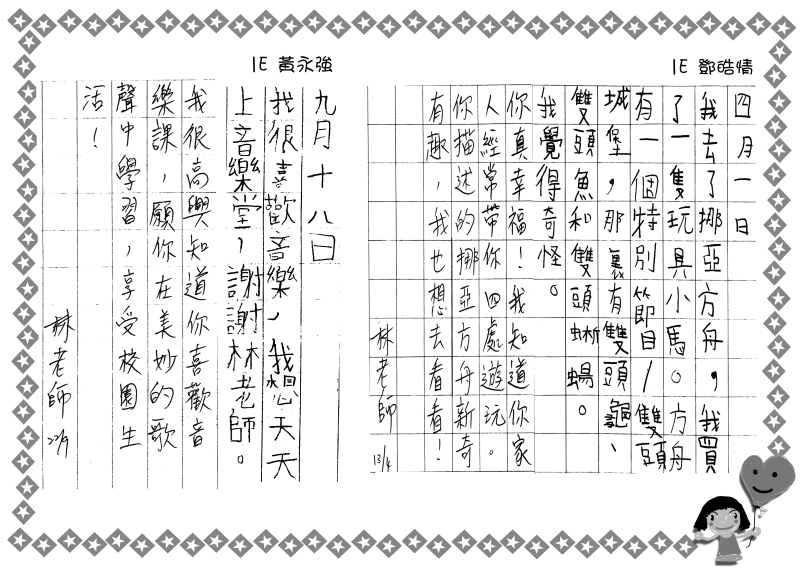 1E 鄧皓情
四月一日
我去了挪亞方舟，我買
了一隻玩具小馬。方舟
有一個特別節目／雙頭
城堡，那裏有雙頭龜、
雙頭魚和雙頭蜥蜴。
我覺得奇怪。
你真幸福！我知道你家
人經常帶你四處遊玩。
你描述的挪亞方舟新奇
有趣，我也想去看看！
林老師 13/4
1E 黃永強
九月十八日
我很喜歡音樂，我想天天
上音樂堂，謝謝林老師。
我很高興知道你喜歡音
樂課，願你在美妙的歌
聲中學習，享受校園生
活！
林老師 22/9